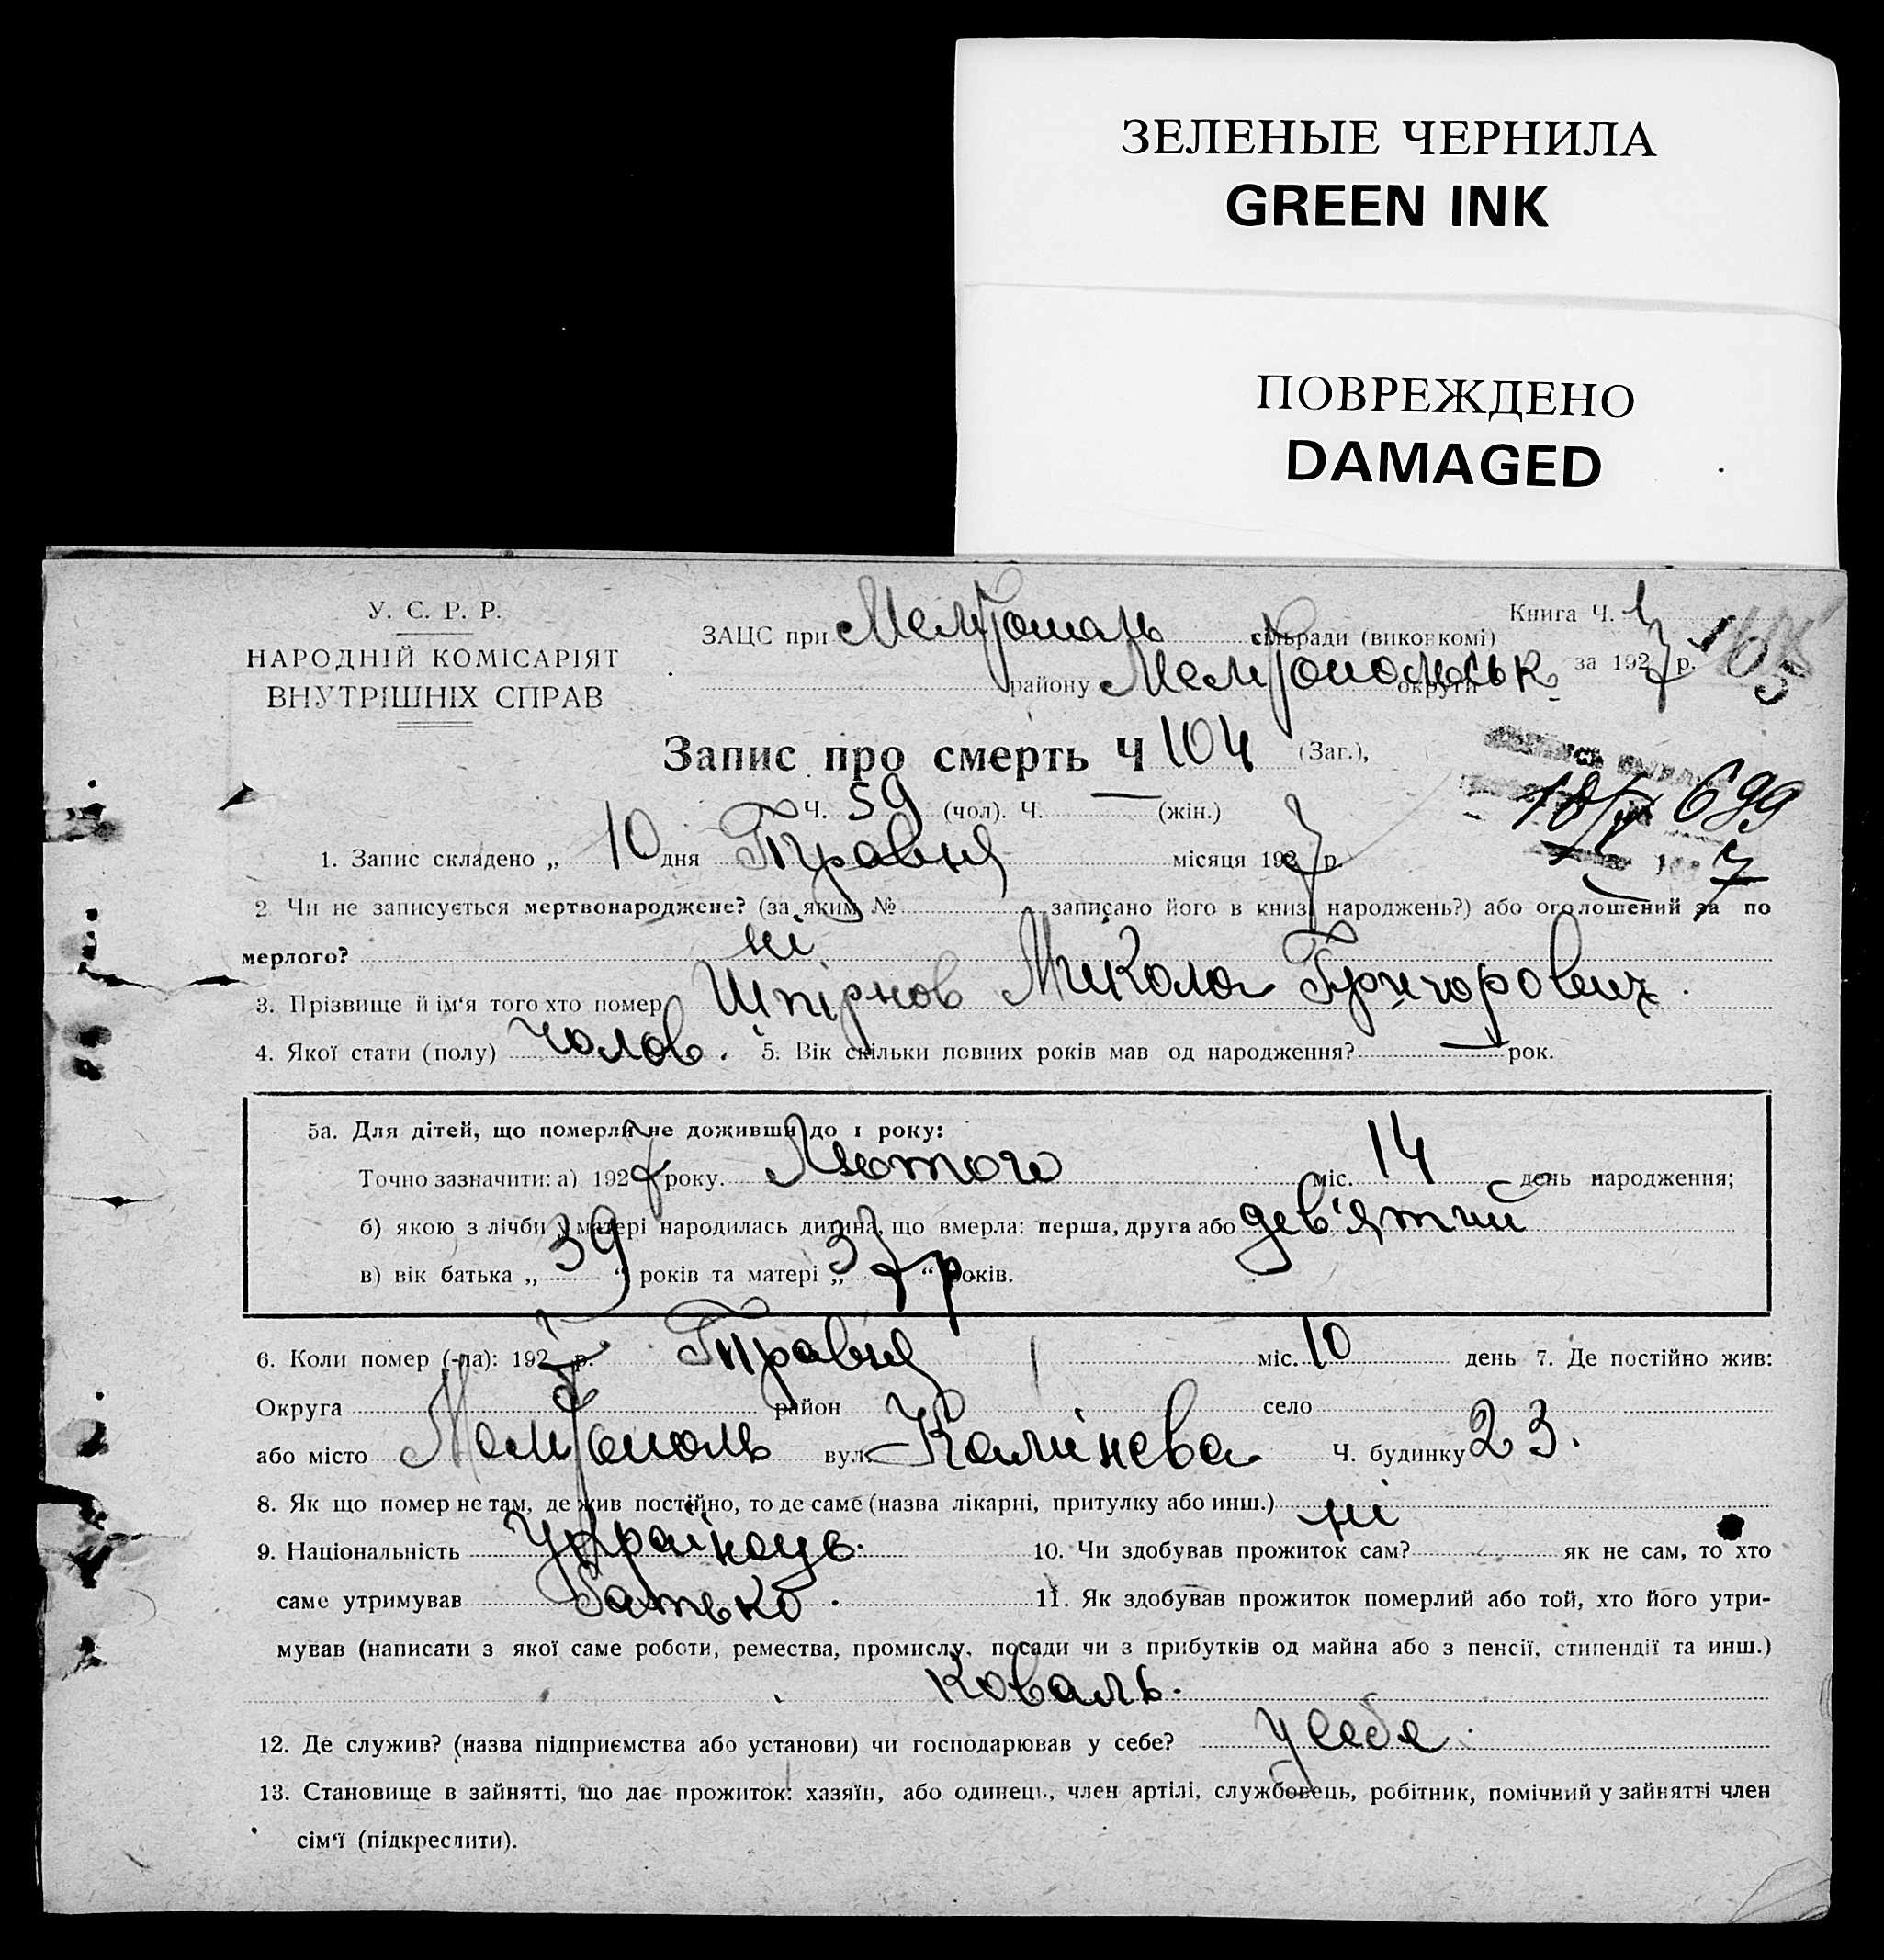 ЗЕЛЕНЫЕ ЧЕРНИЛА
GREEN INK
ПОВРЕЖДЕНО
DAMAGED
У. С. Р. Р.
НАРОДНІЙ КОМІСАРІЯТ
ВНУТРІШНІХ СПРАВ
Книга Ч. 1
ЗАЦС при сільради (виконкомі)
за 1927 р.
району округи
105
Запис про смерть Ч 104 (Заг.),
Ч. 59 (чол). Ч. — (жін.)
699
1. Запис складено „ 10 дня Травня місяця 1927 р.
2 Чи не записується мертвонароджене? (за яким № записано його в книзі народжень?) або оголошений за по
мерлого? ні
3. Прізвище й ім'я того хто помер Шпірнов Микола Григорович.
4. Якої стати (полу) Чолов. 5. Вік скільки повних років мав од народження? — рок.
5а. Для дітей, що померли не доживши до 1 року:
Точно зазначити: а) 1927 року. Лютого міс. 14 день народження;
б) якою з лічби у матері народилась дитина, що вмерла: перша, друга або дев'ятий
в) вік батька „ 39 “ років та матері „ 37 р “ років.
6. Коли помер (-ла): 1927 р. Травня міс. 10 день 7. Де постійно жив:
Округа район село
або місто вул. Ч. будинку 23.
8. Як що помер не там, де жив постійно, то де саме (назва лікарні, притулку або инш.) ні
9. Національність Українець. 10. Чи здобував прожиток сам? як не сам, то хто
саме утримував Батько. 11. Як здобував прожиток померлий або той, хто його утри-
мував (написати з якої саме роботи, ремества, промислу, посади чи з прибутків од майна або з пенсії, стипендії та инш.)
Коваль.
12. Де служив? (назва підприємства або установи) чи господарював у себе? у себе.
13. Становище в зайнятті, що дає прожиток: хазяїн, або одинець, член артілі, службовець, робітник, помічний у зайнятті член
сім'ї (підкреслити).